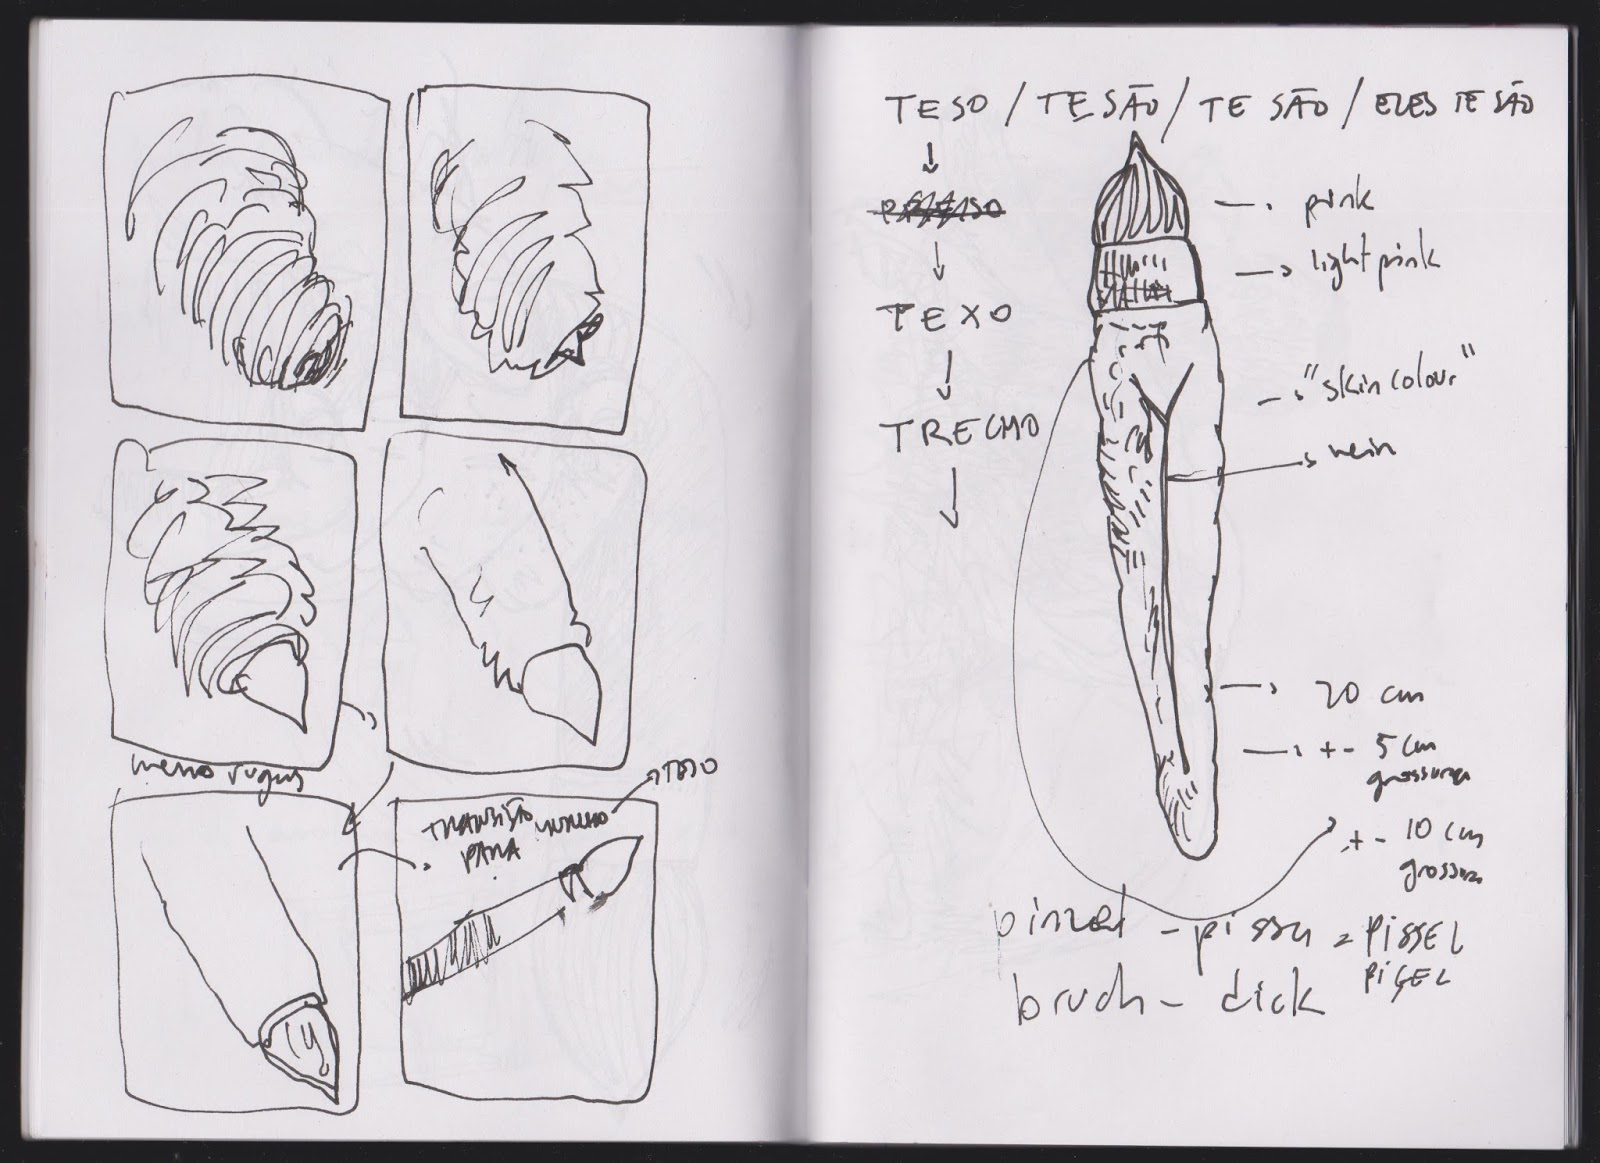 TRANSIÇÃO
PARA
TESO / TESÃO / TE SÃO / ELES TE SÃO
TEXO
TRECHO
pink
light pink
"skin colour"
vein
20 cm
+- 5 cm
grossura
+- 10 cm
grossura
pinzel - pissa = PISSEL
PIÇEL
bruch - dick